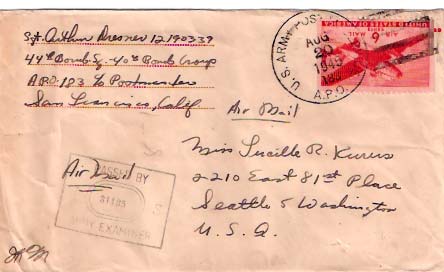 Sgt. Arthur Dresner 12190339
44th Bomb Sq. - 40th Bomb Group
A.P.O. 183 % Postmaster
San Francisco, Calif
U.S. ARMY POST
AUG
20
1945
A.P.O.
AIR MAIL
6¢
UNITED STATES OF AMERICA
Air Mail
Miss Lucille R.
2210 East 81st Place
Seattle 5 Washington
U.S.A.
Air Mail
PASSED BY
ARMY EXAMINER